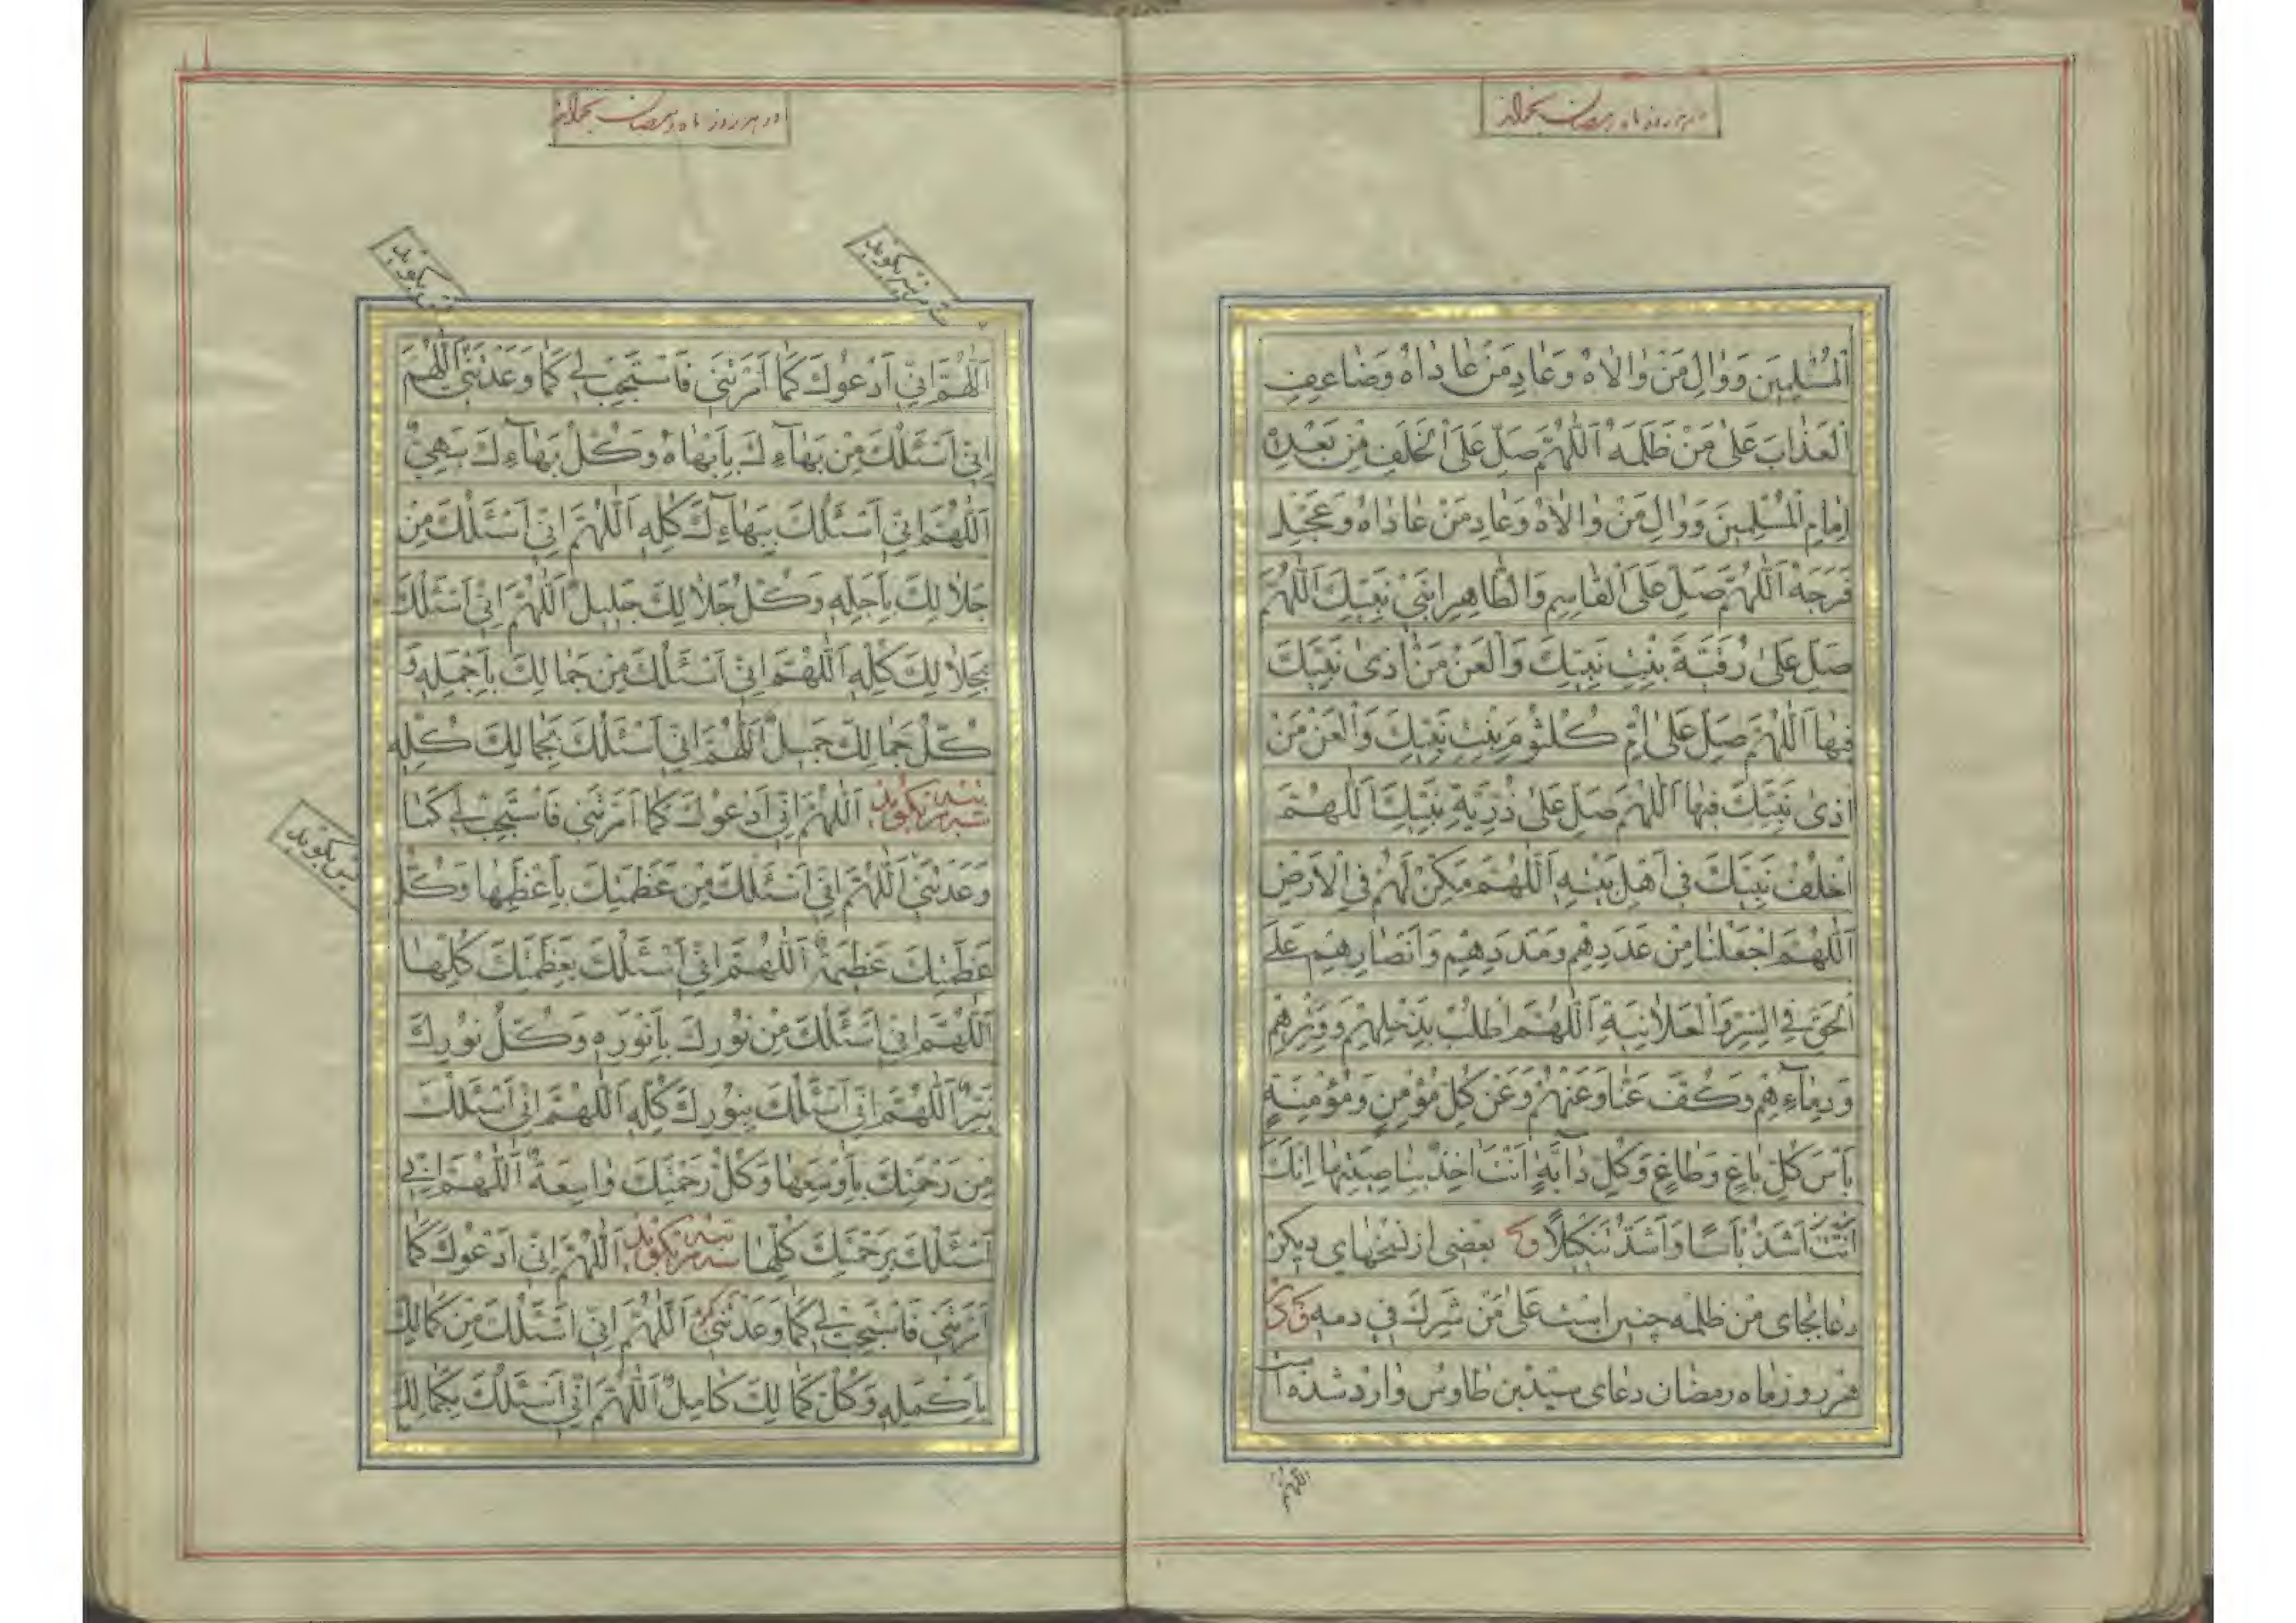 در هر روز ماه رمضان بخواند
اَلْمُسْلِمِينَ وَوٰالِ مَنْ وٰالاٰهُ وَعٰادِ مَنْ عٰادٰاهُ وَضٰاعِفِ
اَلْعَذٰابَ عَلىٰ مَنْ ظَلَمَهُ اَللّٰهُمَّ صَلِّ عَلَى الْخَلَفِ مِنْ بَعْدِهِ
اِمٰامِ الْمُسْلِمِينَ وَوٰالِ مَنْ وٰالاٰهُ وَعٰادِ مَنْ عٰادٰاهُ وَعَجِّلْ
فَرَجَهُ اَللّٰهُمَّ صَلِّ عَلَى الْقٰاسِمِ وَالطّٰاهِرِ ابْنَيْ نَبِيِّكَ اَللّٰهُمَّ
صَلِّ عَلىٰ رُقَيَّةَ بِنْتِ نَبِيِّكَ وَالْعَنْ مَنْ اٰذىٰ نَبِيَّكَ
فِيهٰا اَللّٰهُمَّ صَلِّ عَلىٰ اُمِّ كُلْثُومَ بِنْتِ نَبِيِّكَ وَالْعَنْ مَنْ
اٰذىٰ نَبِيَّكَ فِيهٰا اَللّٰهُمَّ صَلِّ عَلىٰ ذُرِّيَّةِ نَبِيِّكَ اَللّٰهُمَّ
اخْلُفْ نَبِيَّكَ فِي اَهْلِ بَيْتِهِ اَللّٰهُمَّ مَكِّنْ لَهُمْ فِي الْاَرْضِ
اَللّٰهُمَّ اجْعَلْنٰا مِنْ عَدَدِهِمْ وَمَدَدِهِمْ وَاَنْصٰارِهِمْ عَلَى
الْحَقِّ فِي السِّرِّ وَالْعَلاٰنِيَةِ اَللّٰهُمَّ اطْلُبْ بِذَحْلِهِمْ وَوِتْرِهِمْ
وَدِمٰاۤءِهِمْ وَكُفَّ عَنّٰا وَعَنْهُمْ وَعَنْ كُلِّ مُؤْمِنٍ وَمُؤْمِنَةٍ
بَأْسَ كُلِّ بٰاغٍ وَطٰاغٍ وَكُلِّ دٰابَّةٍ اَنْتَ اٰخِذٌ بِنٰاصِيَتِهٰا اِنَّكَ
اَنْتَ اَشَدُّ بَأْسًا وَاَشَدُّ تَنْكِيلاً بعضى از نسخهاى ديكر
دعا بجاى من ظلمه چنين است على من شرك فى دمه
هر روز ماه رمضان دعاى سيّد بن طاوس وارد شده است
اللهم
در هر روز ماه رمضان بخواند
بس بكويد
اَللّٰهُمَّ اِنِّي اَدْعُوكَ كَمٰا اَمَرْتَنِي فَاسْتَجِبْ لِي كَمٰا وَعَدْتَنِي اَللّٰهُمَّ
اِنِّي اَسْئَلُكَ مِنْ بَهٰاۤءِكَ بِاَبْهٰاهُ وَكُلُّ بَهٰاۤءِكَ بَهِيٌّ
اَللّٰهُمَّ اِنِّي اَسْئَلُكَ بِبَهٰاۤءِكَ كُلِّهِ اَللّٰهُمَّ اِنِّي اَسْئَلُكَ مِنْ
جَلاٰلِكَ بِاَجَلِّهِ وَكُلُّ جَلاٰلِكَ جَلِيلٌ اَللّٰهُمَّ اِنِّي اَسْئَلُكَ
بِجَلاٰلِكَ كُلِّهِ اَللّٰهُمَّ اِنِّي اَسْئَلُكَ مِنْ جَمٰالِكَ بِاَجْمَلِهِ وَ
كُلُّ جَمٰالِكَ جَمِيلٌ اَللّٰهُمَّ اِنِّي اَسْئَلُكَ بِجَمٰالِكَ كُلِّهِ
بس سه مرتبه بكويد اَللّٰهُمَّ اِنِّي اَدْعُوكَ كَمٰا اَمَرْتَنِي فَاسْتَجِبْ لِي كَمٰا
بس بكويد
وَعَدْتَنِي اَللّٰهُمَّ اِنِّي اَسْئَلُكَ مِنْ عَظَمَتِكَ بِاَعْظَمِهٰا وَكُلُّ
عَظَمَتِكَ عَظِيمَةٌ اَللّٰهُمَّ اِنِّي اَسْئَلُكَ بِعَظَمَتِكَ كُلِّهٰا
اَللّٰهُمَّ اِنِّي اَسْئَلُكَ مِنْ نُورِكَ بِاَنْوَرِهِ وَكُلُّ نُورِكَ
نَيِّرٌ اَللّٰهُمَّ اِنِّي اَسْئَلُكَ بِنُورِكَ كُلِّهِ اَللّٰهُمَّ اِنِّي اَسْئَلُكَ
مِنْ رَحْمَتِكَ بِاَوْسَعِهٰا وَكُلُّ رَحْمَتِكَ وٰاسِعَةٌ اَللّٰهُمَّ اِنِّي
اَسْئَلُكَ بِرَحْمَتِكَ كُلِّهٰا بس سه مرتبه بكويد اَللّٰهُمَّ اِنِّي اَدْعُوكَ كَمٰا
اَمَرْتَنِي فَاسْتَجِبْ لِي كَمٰا وَعَدْتَنِي اَللّٰهُمَّ اِنِّي اَسْئَلُكَ مِنْ كَمٰالِكَ
بِاَكْمَلِهِ وَكُلُّ كَمٰالِكَ كٰامِلٌ اَللّٰهُمَّ اِنِّي اَسْئَلُكَ بِكَمٰالِكَ